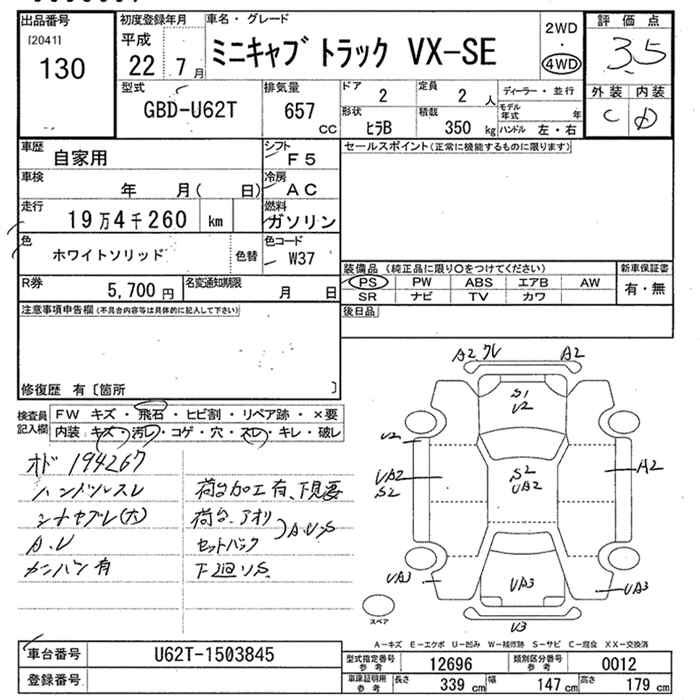 出品番号 初度登録年月 車名・グレード 2WD 評価点
[2041] 平成 ミニキャブ トラック VX-SE ・ 3.5
130 22年7月 4WD
型式 排気量 ドア 定員 ディーラー・並行 外装 内装
GBD-U62T 657 CC 2 2 人 モデル年式 年 C D
形状 積載 ハンドル 左・右
ヒラB 350 kg
車歴 自家用 シフト F5 セールスポイント(正常に機能するものに限ります)
車検 年 月( 日) 冷房 AC
走行 19万4千260 km 燃料 ガソリン
色 ホワイトソリッド 色替 色コード W37
装備品 (純正品に限り○をつけてください) 新車保証書
R券 5,700円 名変通知期限 月 日 PS PW ABS エアB AW 有・無
SR ナビ TV カワ
注意事項申告欄(不具合内容等は具体的に記入して下さい) 後日品
修復歴 有〔箇所 〕
検査員記入欄 FW キズ・飛石・ヒビ割・リペア跡・×要
内装 キズ・汚レ・コゲ・穴・スレ・キレ・破レ
オド 194267
ハンドルスレ 荷台加工有、下見要
シートヤブレ(大) 荷台、アオリ
A.U セットバック A.U.S
カンバン有 下廻りS
A2 ワレ A2
S1
U2
U2
UA2
S2
S2
UA2
A2
UA3 UA3 UA3
U3
スペア
A-キズ E-エクボ U-凹み W-補修跡 S-サビ C-腐食 XX-交換済
車台番号 U62T-1503845 型式指定番号 参考 12696 類別区分番号 参考 0012
登録番号 車庫証明用 参考 長さ 339 cm 幅 147 cm 高さ 179 cm